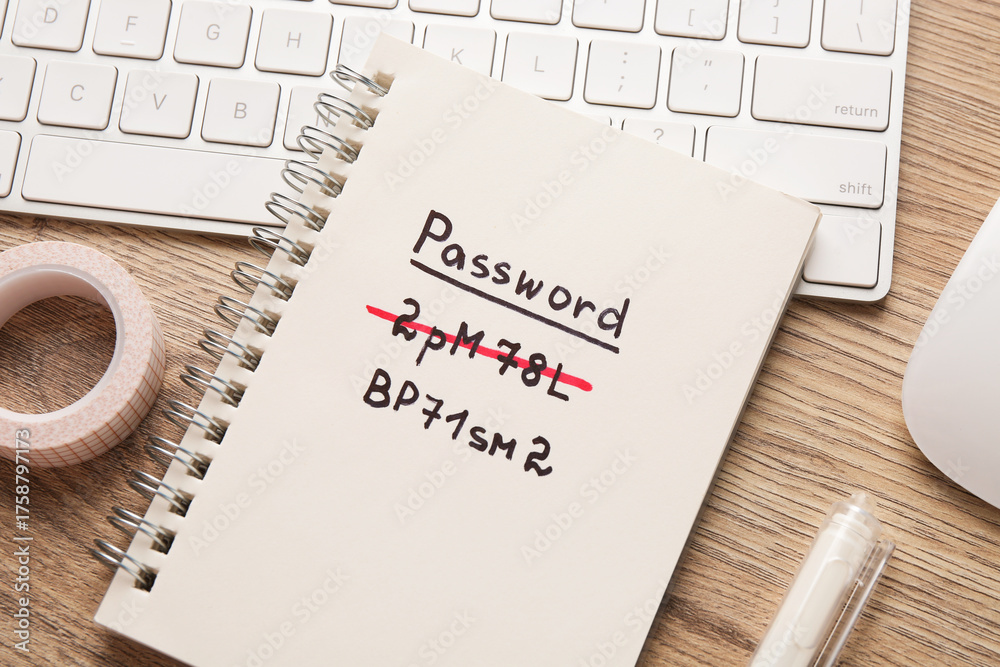 D F G H K L : ; " ' { [ } ] | \
C V B ? return
shift
Password
2pM78L
BP71sm2
Adobe Stock | #1758797173
Adobe Stock